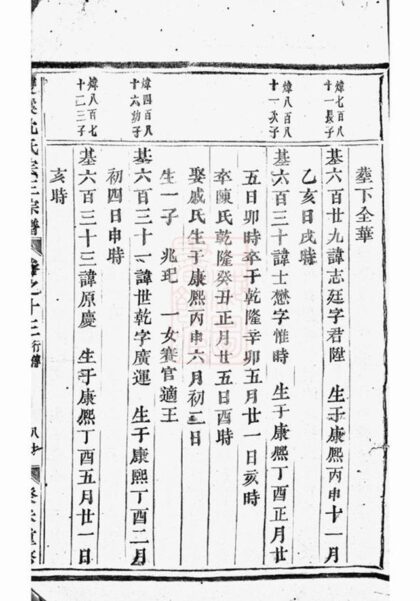 葬下金華
煒七百八
十一長子
基六百廿九諱志廷字君陞 生于康熙丙申十一月
乙亥日戌時
煒八百八
十一次子
基六百三十諱士懋字惟時 生于康熙丁酉正月廿
五日卯時卒于乾隆辛卯五月廿一日亥時
卒陳氏乾隆癸丑正月廿五日酉時
娶戚氏生于康熙丙申六月初二日
生一子 兆玘 一女賽官適王
煒四百八
十六幼子
基六百三十一諱世乾字廣運 生于康熙丁酉二月
初四日申時
煒八百七
十二三子
基六百三十三諱原慶 生于康熙丁酉五月廿一日
亥時
沈氏 宗譜 卷之十三 行傳